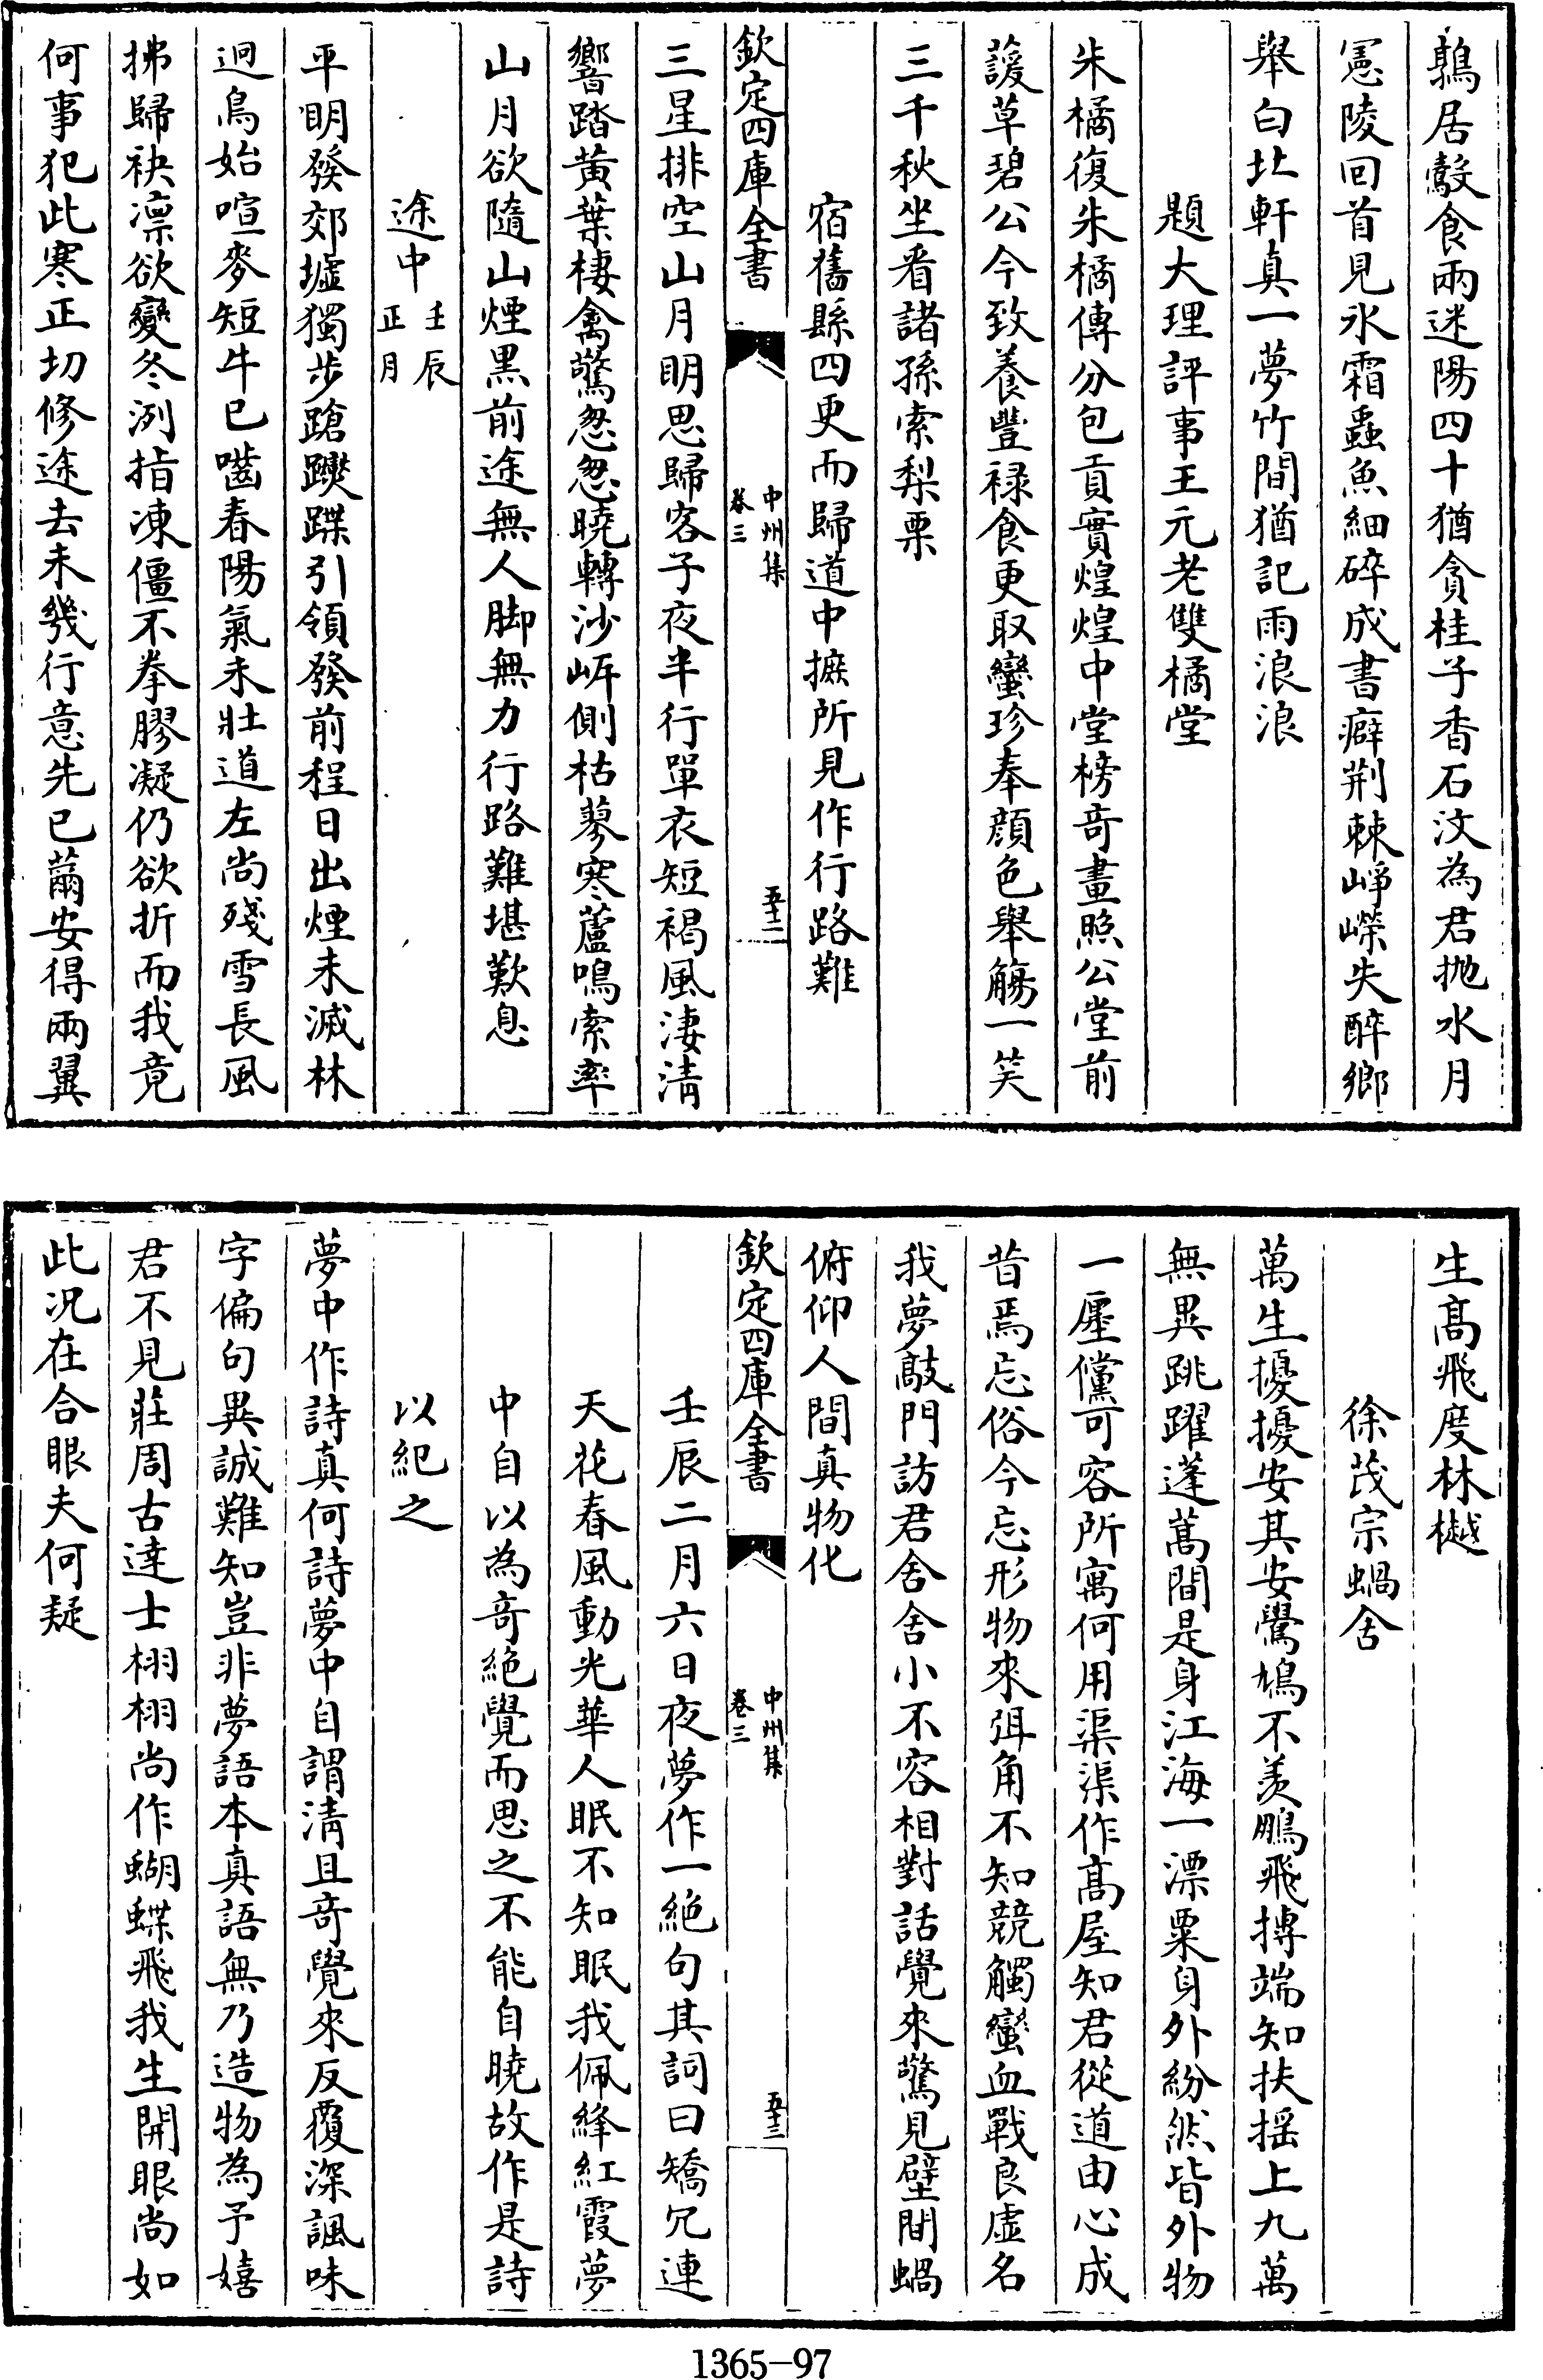 鶉居鷇食兩迷陽四十猶貪桂子香石汶為君拋水月
憲陵回首見氷霜蟲魚細碎成書癖荆棘崢嶸失醉鄉
舉白北軒真一夢竹間猶記雨浪浪
題大理評事王元老雙橘堂
朱橘復朱橘傳分包貢實煌煌中堂榜奇畫照公堂前
諼草碧公今致養豐禄食更取蠻珍奉顔色舉觴一笑
三千秋坐看諸孫索梨栗
宿舊縣四更而歸道中摭所見作行路難
欽定四庫全書
中州集
卷三
五十二
三星排空山月明思歸客子夜半行單衣短褐風淒清
響踏黄葉棲禽驚忽忽曉轉沙岍側枯蓼寒蘆鳴索率
山月欲隨山煙黑前途無人脚無力行路難堪歎息
途中壬辰正月
平明發郊墟獨步蹌躞蹀引領發前程日出煙未滅林
迥鳥始喧麥短牛已嚙春陽氣未壯道左尚殘雪長風
拂歸袂凛欲變冬冽指凍僵不拳膠凝仍欲折而我竟
何事犯此寒正切修途去未幾行意先已薾安得兩翼
生髙飛度林樾
徐茂宗蝸舍
萬生擾擾安其安鷽鳩不羨鵬飛搏端知扶摇上九萬
無異跳躍蓬蒿間是身江海一漂粟身外紛然皆外物
一廛儻可容所寓何用渠渠作髙屋知君從道由心成
昔焉忘俗今忘形物來弭角不知競觸蠻血戰良虚名
我夢敲門訪君舍舍小不容相對話覺來驚見壁間蝸
俯仰人間真物化
欽定四庫全書
中州集
卷三
五十三
壬辰二月六日夜夢作一絶句其詞曰矯冗連
天花春風動光華人眠不知眠我佩絳紅霞夢
中自以為奇絶覺而思之不能自曉故作是詩
以紀之
夢中作詩真何詩夢中自謂清且奇覺來反覆深諷味
字偏句異誠難知豈非夢語本真語無乃造物為予嬉
君不見莊周古達士栩栩尚作蝴蝶飛我生開眼尚如
此况在合眼夫何疑
1365-97